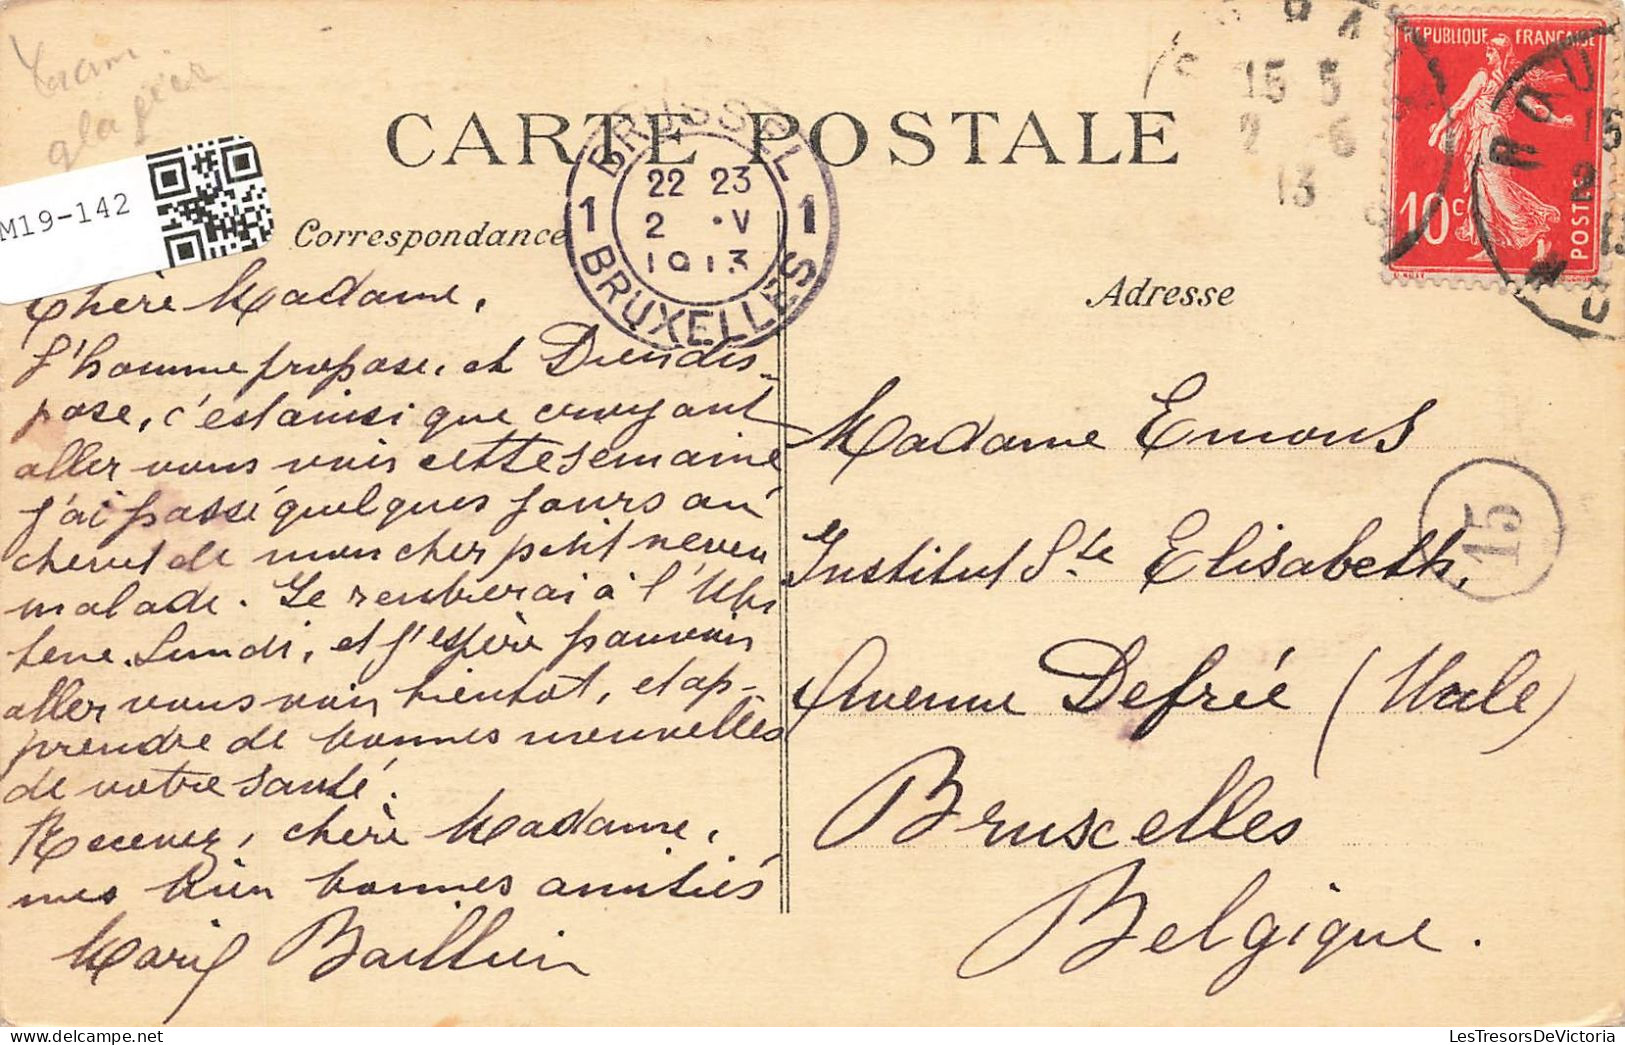 Tram
M19-142
CARTE POSTALE
Correspondance
Adresse
BRUSSEL
1 22 23 1
2 •V
1913
BRUXELLES
15 5
2 -5
13
REPUBLIQUE FRANÇAISE
10 c.
POSTES
ROUBAIX
Chère Madame,
L'homme propose, et Dieu dis-
pose, c'est ainsi que croyant
aller vous voir cette semaine
j'ai passé quelques jours au
chevet de mon cher petit neveu
malade. Je rentrerai à l'
Lundi, et j'espère pouvoir
aller vous voir bientôt, et ap-
prendre de bonnes nouvelles
de votre santé.
Recevez, chère Madame,
mes bien bonnes amitiés
Marie Baillien
Madame Emons
Institut Ste Elisabeth,
15
Avenue Defrée (Uccle)
Bruxelles
Belgique.
LesTresorsDeVictoria